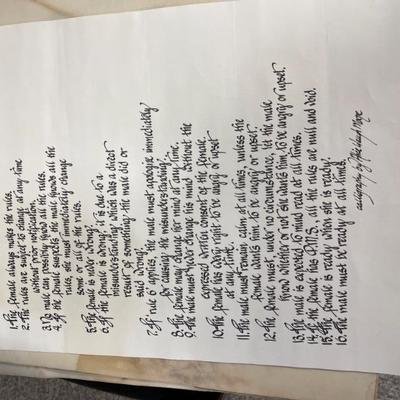 1. The female always makes the rules.
2. The rules are subject to change at any time
without prior notification.
3. No male can possibly know all the rules.
4. If the female suspects the male knows all the
rules, she must immediately change
some or all of the rules.
5. The female is never wrong.
6. If the female is wrong, it is due to a
misunderstanding which was a direct
result of something the male did or
said wrong.
7. If rule 6 applies, the male must apologize immediately
for causing the misunderstanding.
8. The female may change her mind at any time.
9. The male must never change his mind without the
expressed written consent of the female.
10. The female has every right to be angry or upset
at any time.
11. The male must remain calm at all times, unless the
female wants him to be angry or upset.
12. The female must, under no circumstance, let the male
know whether or not she wants him to be angry or upset.
13. The male is expected to mind read at all times.
14. If the female has P.M.S. all the rules are null and void.
15. The female is ready when she is ready.
16. The male must be ready at all times.
calligraphy by